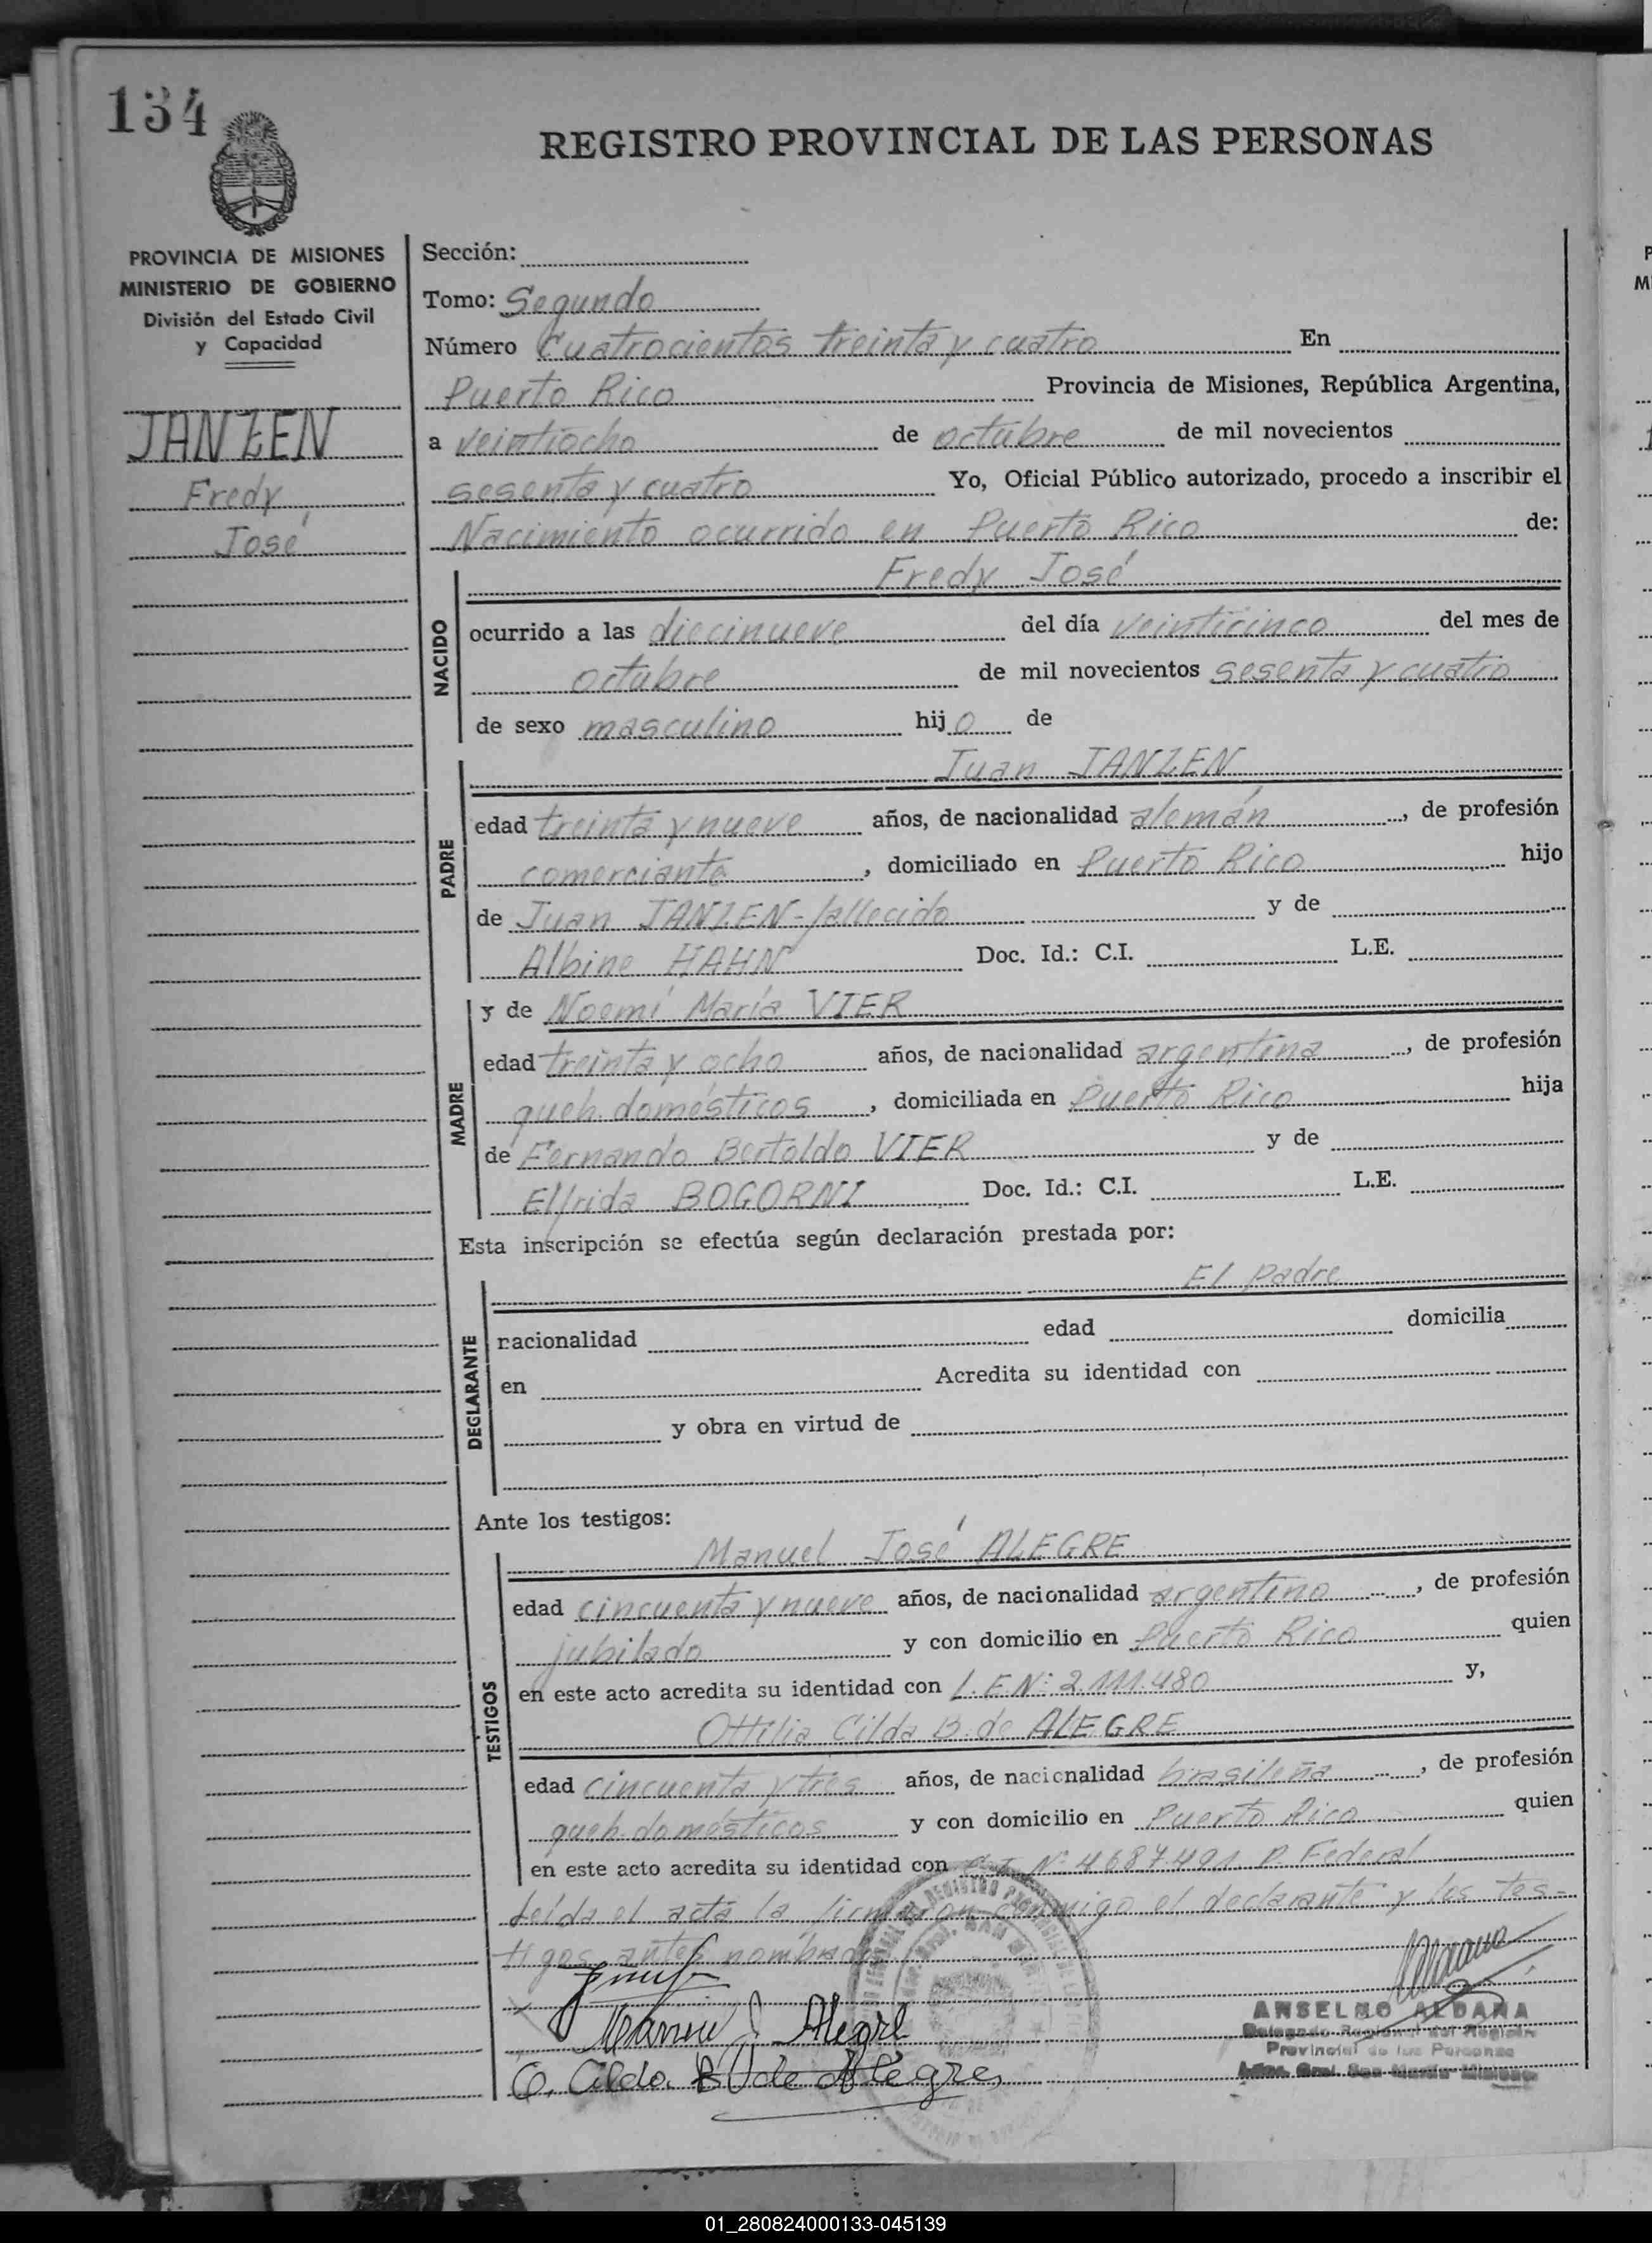 134
REGISTRO PROVINCIAL DE LAS PERSONAS
PROVINCIA DE MISIONES
MINISTERIO DE GOBIERNO
División del Estado Civil
y Capacidad
JANZEN
Fredy
José
Sección:
Tomo: Segundo
Número Cuatrocientos treinta y cuatro En
Puerto Rico Provincia de Misiones, República Argentina,
a veintiocho de octubre de mil novecientos
sesenta y cuatro Yo, Oficial Público autorizado, procedo a inscribir el
Nacimiento ocurrido en Puerto Rico de:
Fredy José
NACIDO
ocurrido a las diecinueve del día veinticinco del mes de
octubre de mil novecientos sesenta y cuatro
de sexo masculino hijo de
Juan JANZEN
PADRE
edad treinta y nueve años, de nacionalidad alemán, de profesión
comerciante, domiciliado en Puerto Rico hijo
de Juan JANZEN-fallecido y de
Albine HAHN Doc. Id.: C.I. L.E.
y de Noemí María VIER
MADRE
edad treinta y ocho años, de nacionalidad argentina, de profesión
queh. domésticos, domiciliada en Puerto Rico hija
de Fernando Bertoldo VIER y de
Elfrida BOGORNI Doc. Id.: C.I. L.E.
Esta inscripción se efectúa según declaración prestada por:
El padre
DECLARANTE
nacionalidad edad domicilia
en Acredita su identidad con
y obra en virtud de
Ante los testigos:
Manuel José ALEGRE
TESTIGOS
edad cincuenta y nueve años, de nacionalidad argentino, de profesión
jubilado y con domicilio en Puerto Rico quien
en este acto acredita su identidad con L.E.Nº: 2.111.480 y,
Ottilia Cilda B. de ALEGRE
edad cincuenta y tres años, de nacionalidad brasileña, de profesión
queh. domésticos y con domicilio en Puerto Rico quien
en este acto acredita su identidad con C.I. Nº 4687491. P. Federal
Leída el acta la firmaron conmigo el declarante y los tes-
tigos antes nombrados
Manuel J. Alegre
O. Cilda B. de Alegre
ANSELMO ALDANA
Delegado Regional del Registro
Provincial de las Personas
01_280824000133-045139